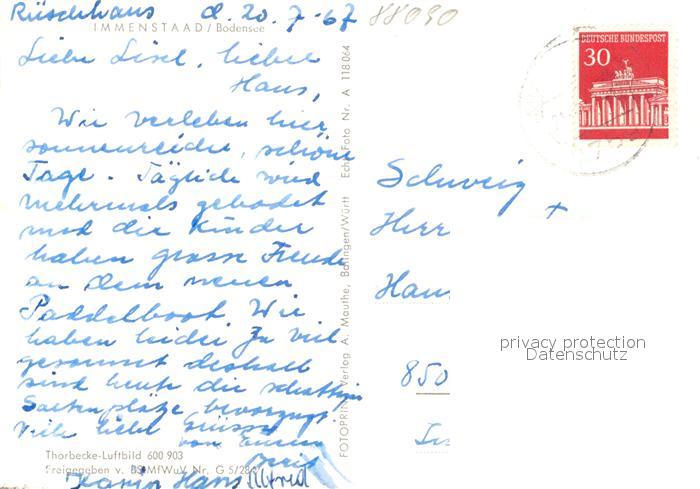 Rüschhaus d. 20. 7. 67
88090
IMMENSTAAD / Bodensee
Liebe Lisel, lieber
Hans,
Wir verleben hier
sonnenreiche, schöne
Tage. Täglich wird
mehrmals gebadet
und die Kinder
haben grosse Freude
an dem neuen
Paddelboot. Wir
haben leider zu viel
gesonnt deshalb
sind heute die schattigen
bevorzugt
Viele liebe Grüsse
von Euren
Karin Hans Alfred
Thorbecke-Luftbild 600 903
Freigegeben v. BSTMfWuV Nr. G 5/28
FOTOPRINT Verlag A. Mauthe, Balingen/Württ Echt Foto Nr. A 118 064
DEUTSCHE BUNDESPOST
30
Schweiz
Herr
Hans
850
privacy protection
Datenschutz